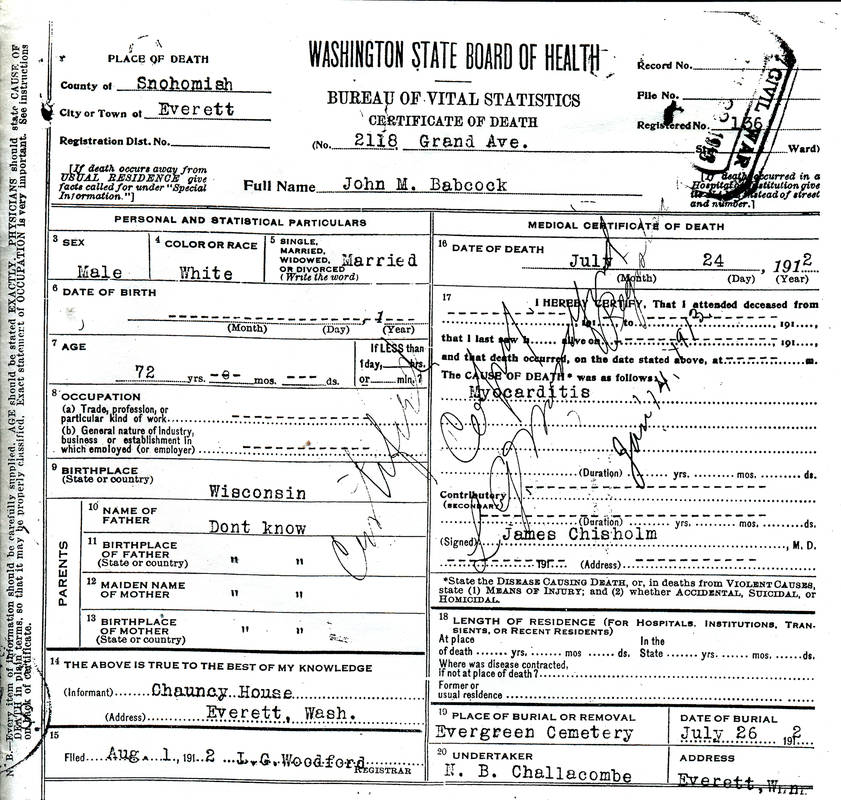 WASHINGTON STATE BOARD OF HEALTH
BUREAU OF VITAL STATISTICS
CERTIFICATE OF DEATH
PLACE OF DEATH
County of Snohomish
City or Town of Everett
Registration Dist. No.
(No. 2118 Grand Ave.
Record No.
File No.
Registered No. 166
Ward)
CIVIL WAR
[If death occurs away from
USUAL RESIDENCE give
facts called for under "Special
Information."]
Full Name John M. Babcock
[If death occurred in a
Hospital or Institution give
its NAME instead of street
and number.]
PERSONAL AND STATISTICAL PARTICULARS
3 SEX
Male
4 COLOR OR RACE
White
5 SINGLE,
MARRIED,
WIDOWED,
OR DIVORCED
(Write the word)
Married
6 DATE OF BIRTH
, 1
(Month) (Day) (Year)
7 AGE
72 yrs. -0- mos. --- ds.
If LESS than
1 day, hrs.
or min.?
8 OCCUPATION
(a) Trade, profession, or
particular kind of work
(b) General nature of Industry,
business or establishment in
which employed (or employer)
9 BIRTHPLACE
(State or country)
Wisconsin
PARENTS
10 NAME OF
FATHER
Dont know
11 BIRTHPLACE
OF FATHER
(State or country) " "
12 MAIDEN NAME
OF MOTHER " "
13 BIRTHPLACE
OF MOTHER
(State or country) " "
14 THE ABOVE IS TRUE TO THE BEST OF MY KNOWLEDGE
(Informant) Chauncy House
(Address) Everett, Wash.
15
Filed Aug. 1, 1912 L.G.Woodford
REGISTRAR
MEDICAL CERTIFICATE OF DEATH
16 DATE OF DEATH
July 24, 1912
(Month) (Day) (Year)
17
I HEREBY CERTIFY, That I attended deceased from
191 , to 191 ,
that I last saw h alive on 191 ,
and that death occurred, on the date stated above, at m.
The CAUSE OF DEATH* was as follows:
Myocarditis
(Duration) yrs. mos. ds.
Contributory
(SECONDARY)
(Duration) yrs. mos. ds.
(Signed) James Chisholm, M. D.
191 (Address)
*State the DISEASE CAUSING DEATH, or, in deaths from VIOLENT CAUSES,
state (1) MEANS OF INJURY; and (2) whether ACCIDENTAL, SUICIDAL, or
HOMICIDAL.
18 LENGTH OF RESIDENCE (FOR HOSPITALS, INSTITUTIONS, TRAN-
SIENTS, OR RECENT RESIDENTS)
At place In the
of death yrs. mos ds. State yrs. mos. ds.
Where was disease contracted,
if not at place of death?
Former or
usual residence
19 PLACE OF BURIAL OR REMOVAL
Evergreen Cemetery
DATE OF BURIAL
July 26 1912
20 UNDERTAKER
N. B. Challacombe
ADDRESS
Everett, Wn.
Certified Copy
Jan. 14, 1913
N. B.—Every item of information should be carefully supplied. AGE should be stated EXACTLY. PHYSICIANS should state CAUSE OF
DEATH in plain terms, so that it may be properly classified. Exact statement of OCCUPATION is very important. See instructions
on back of certificate.